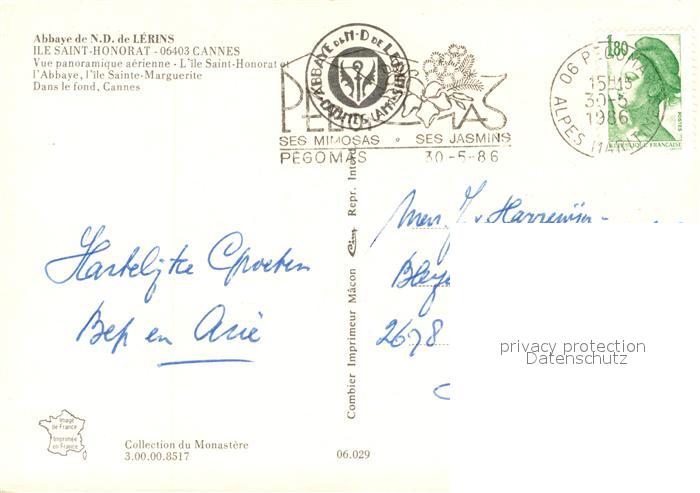 Abbaye de N.D. de LÉRINS
ILE SAINT-HONORAT - 06403 CANNES
Vue panoramique aérienne - L'île Saint-Honorat et
l'Abbaye, l'île Sainte-Marguerite
Dans le fond, Cannes
ABBAYE DE N-D DE LERINS
SES MIMOSAS • SES JASMINS
PÉGOMAS 30-5-86
06 PEGOMAS
15H15
30-5
1986
ALPES MARITIMES
1,80
POSTES
REPUBLIQUE FRANÇAISE
Hartelijke Groeten
Bep en Arie
Combier Imprimeur Mâcon Cim Repr. Interd.
Mevr J v
2678
privacy protection
Datenschutz
Image
de France
Imprimée
en France
Collection du Monastère
3.00.00.8517
06.029